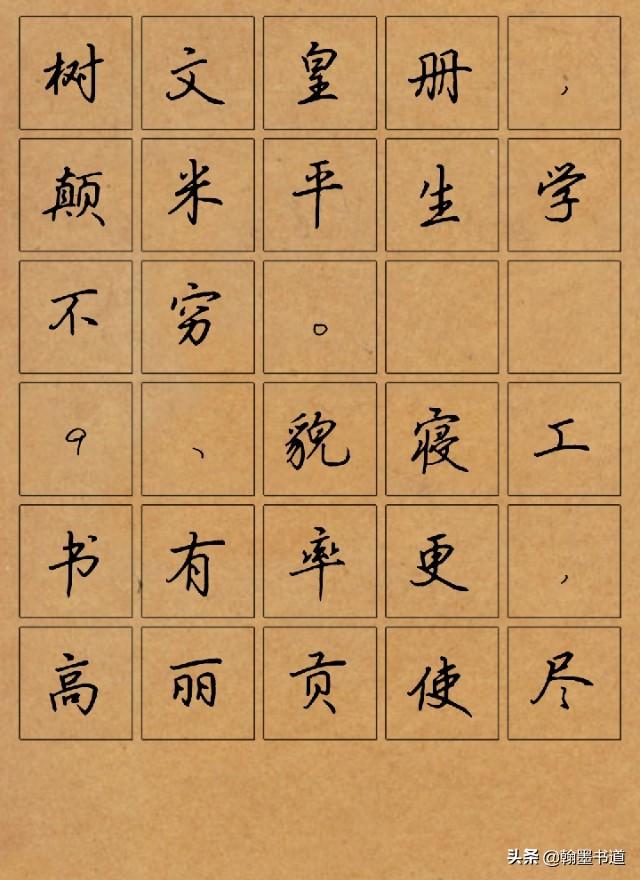 树文皇册，
颠米平生学
不穷。
9、貌寝工
书有率更，
高丽贡使尽
头条 @翰墨书道